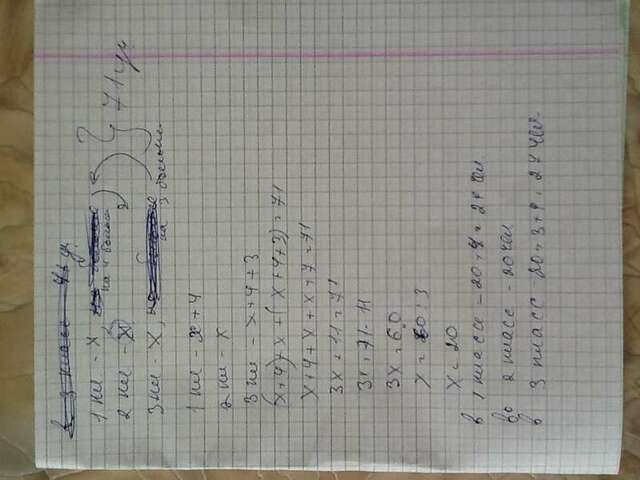 1 кл - х, на 4 больше } 71 уч.
2 кл - х
3 кл - х, на 3 больше
1 кл - х + 4
2 кл - х
3 кл - х+4+3
(х+4)+х+(х+4+3)=71
х+4+х+х+7=71
3х+11=71
3х=71-11
3х=60
х=60:3
х=20
в 1 классе - 20+4=24 чел
во 2 класс - 20 чел
в 3 класс 20+3+4=27 чел.